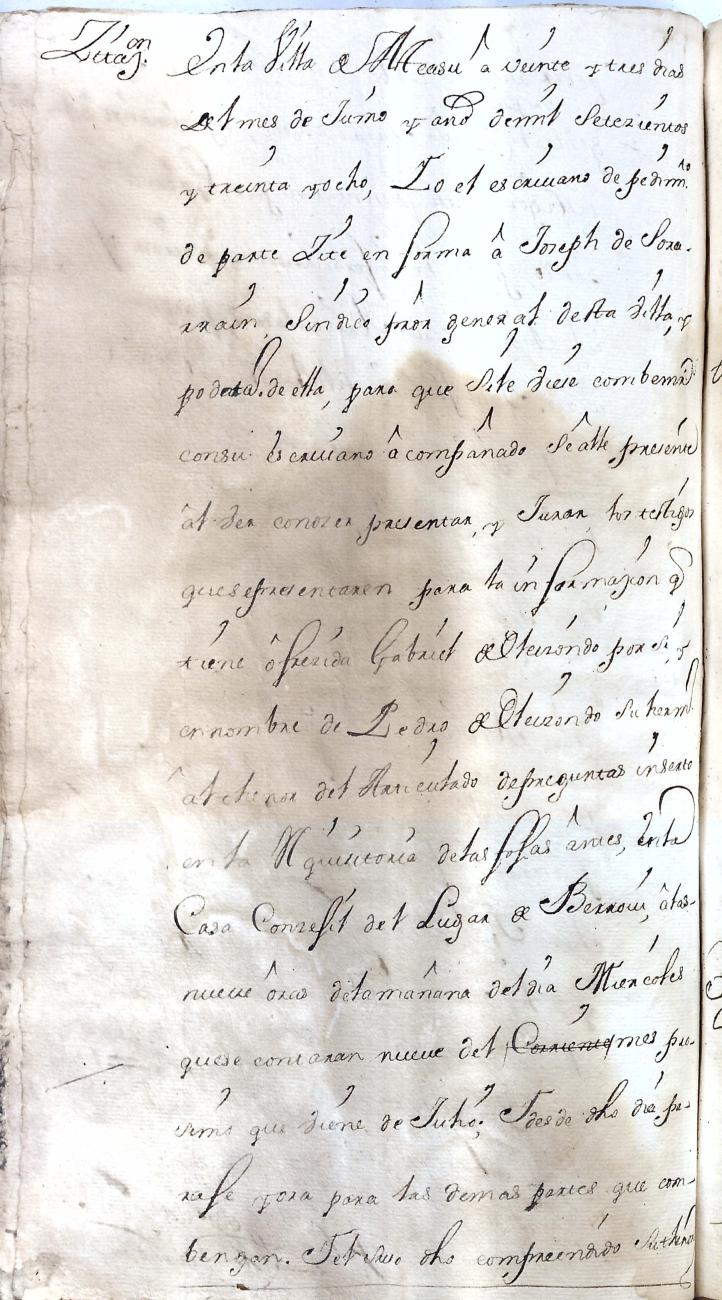 Zitaz.on
En la Villa de Alleasu â veinte y tres dias
del mes de Junio y año de mil setezientos
y treinta y ocho, Io el escriuano de pedim.to
de parte Zite en forma â Joseph de Sora-
rrain, Sindico pror general desta Villa, y
de ella, para que si le diese combenir
con su escriuano âcompañado se alle presente
âl ver conozer presentar, y Jurar los testigos
que se presentaren para la informazion q
tiene ôfrezida Gabriel de Oteizondo por si, y
en nombre de Pedro de Oteizondo su herm.
âl thenor del Articulado de preguntas inserto
en la Rquisitoria de las fojas ântes, en la
Casa Conzejil del Lugar de Berroui, â las
nueue ôras de la mañana del dia Miercoles
que se contaran nueue del Corriente mes pro-
simo que viene de Julio; I desde dho dia pa-
raje y ora para las demas partes que com-
bengan. I el suso dho comprendido su thenor